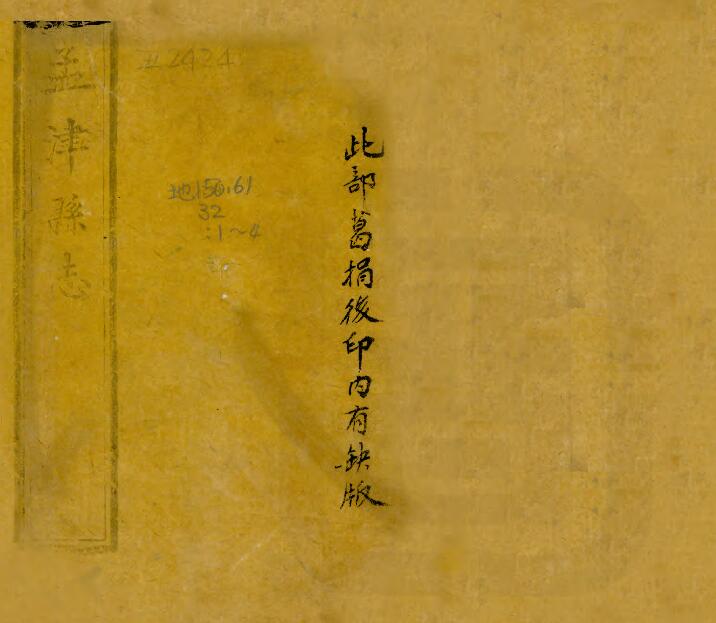 此部葛捐後印内有缺版
地150.61
32
:1~4
孟津縣志